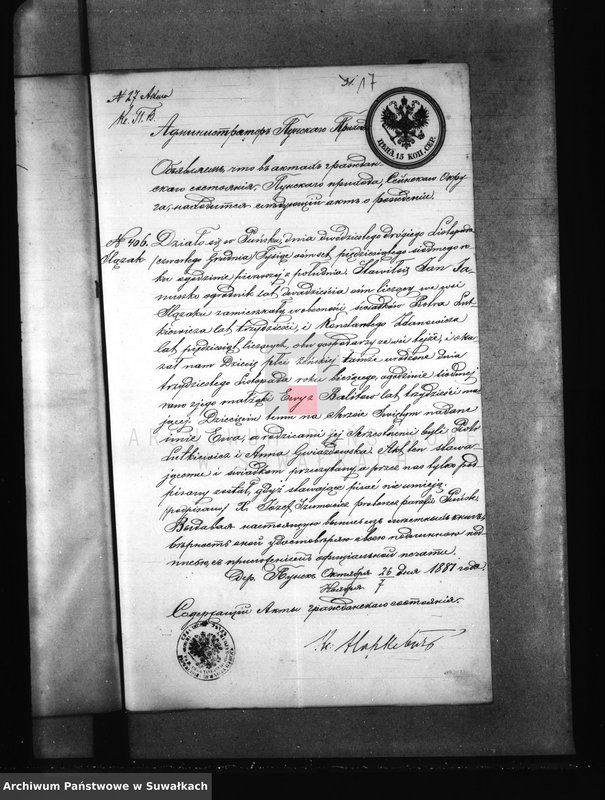 № 27 Aдма
№ 17
ЦѢНА 15 КОП. СЕР.
Администраторъ Пунскаго Прихода
Объявляетъ, что въ актахъ граждан-
скаго состоянія, Пунскаго прихода, Сейнскаго Окру-
га, находится слѣдующій актъ о рожденіи.
№ 406. Działo się w Puńsku, dnia dwódziestego drógiego Listopada
Szłązak (czwartego Grudnia) Tysiąc ośmset pięćdziesiątego siódmego ro-
ku o godzinie pierwszej z południa. Stawił się Jan Ja-
nuszko ogrodnik lat dwadzieścia ośm liczący we wsi
zamieszkały w obecności świadków Piotra Lut-
kiewicza lat trzydzieści, i Konstantego Zdanowicza
lat pięćdziesiąt liczących, obu gospodarzy ze wsi tejże, i oka-
zał nam Dziecię płci żeńskiej tamże urodzone dnia
trzydziestego Listopada roku bieżącego, o godzinie siódmej
rano z jego małżonki Ewy z Balitów lat trzydzieści ma-
jącej. Dziecięciu temu na Chrzcie Świętym nadane
imie Ewa, a rodzicami jej chrzestnemi byli Piotr
Lutkiewicz i Anna Gwiazdowska. Akt ten stawa-
jącemu i świadkom przeczytany, a przez nas tylko pod-
pisany został, gdyż stawający pisać nie umieją.
(podpisany) X. Józef Szumowicz proboszcz parafii Puńsk.
Выдавая настоящую выпись изъ книгъ,
вѣрность оной удостовѣряю моею под-
писью съ приложеніемъ оффиціальной печати.
Дер. Пунскъ Октября 26 дня 1887 года.
Ноября 7
Содержащій Акты гражданскаго состоянія.
Archiwum Państwowe w Suwałkach